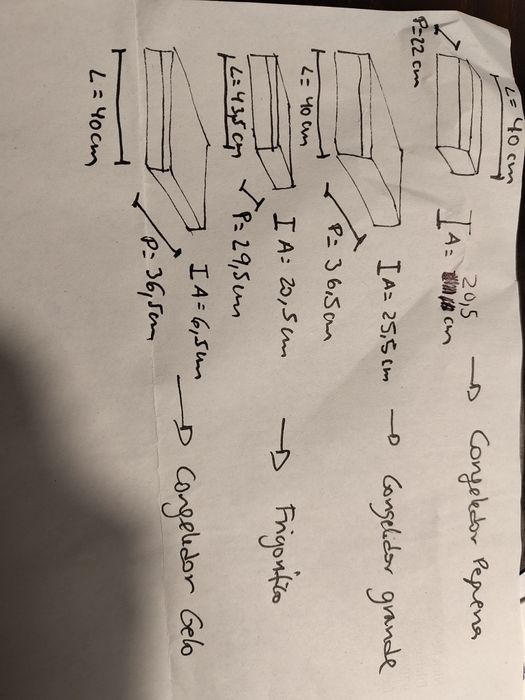 L = 40 cm
P = 22 cm
A = 20,5 cm → Congelador Pequena
L = 40 cm
P = 36,5 cm
A = 25,5 cm → Congelidor grande
L = 43,5 cm
P = 29,5 cm
A = 20,5 cm → Frigorifico
L = 40 cm
P = 36,5 cm
A = 6,5 cm → Congeledor Gelo